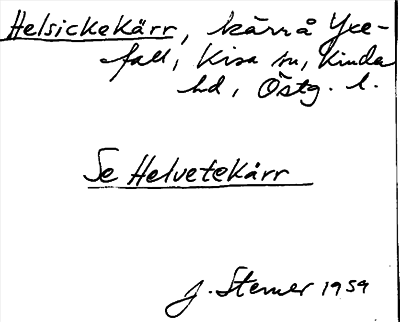 Helsickekärr, kärr å Yxe-
fall, Kisa sn, Kinda
hd, Östg. l.
Se Helvetekärr
J. Sterner 1959